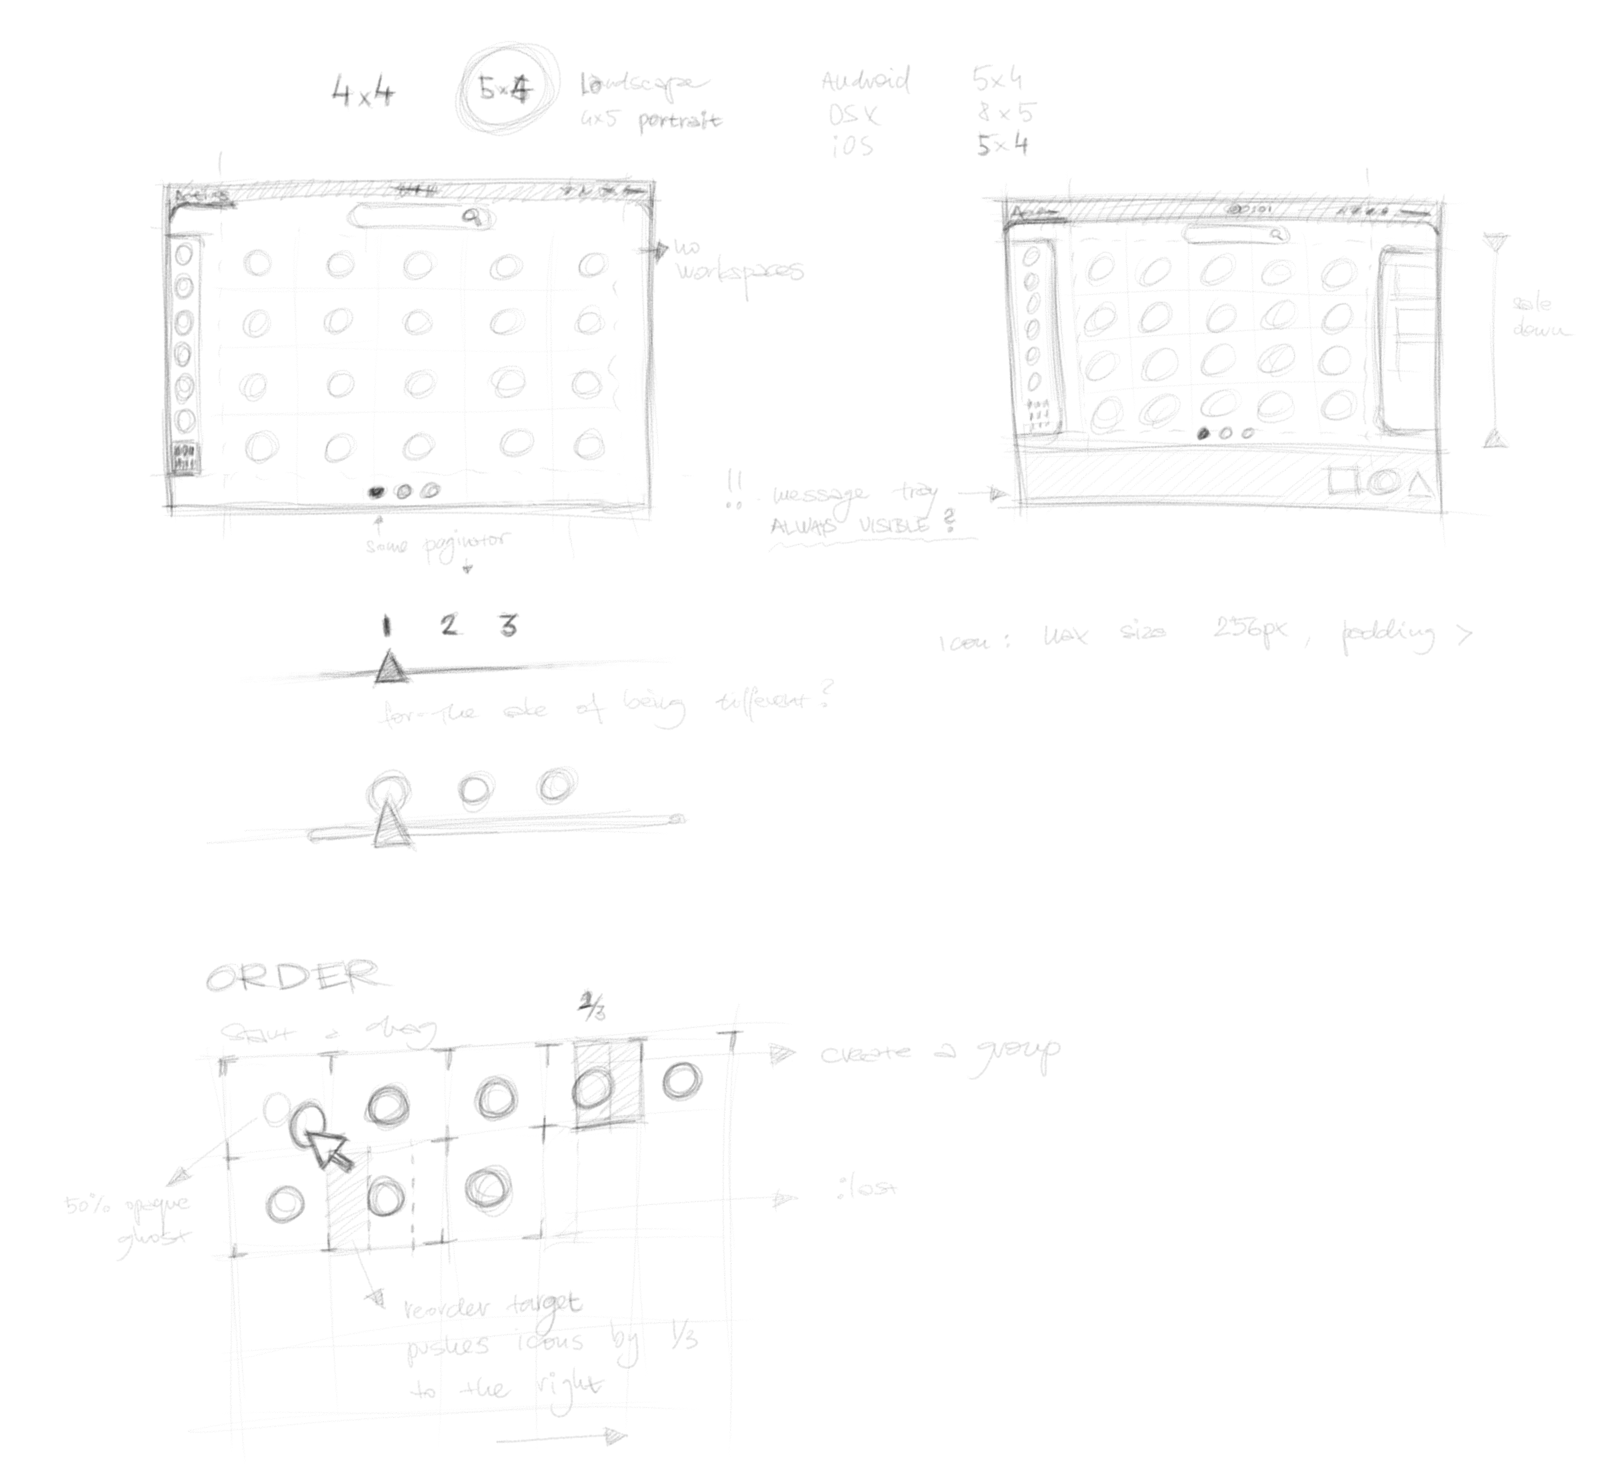 4x4
5x4
landscape
4x5 portrait
Android 5x4
OSX 8x5
iOS 5x4
no
workspaces
!! message tray
ALWAYS VISIBLE?
down
some paginator
1 2 3
for the sake of being different?
icon: max size 256px, padding >
ORDER
start a drag
/3
create a group
50% opaque
ghost
:last
reorder target
pushes icons by 1/3
to the right